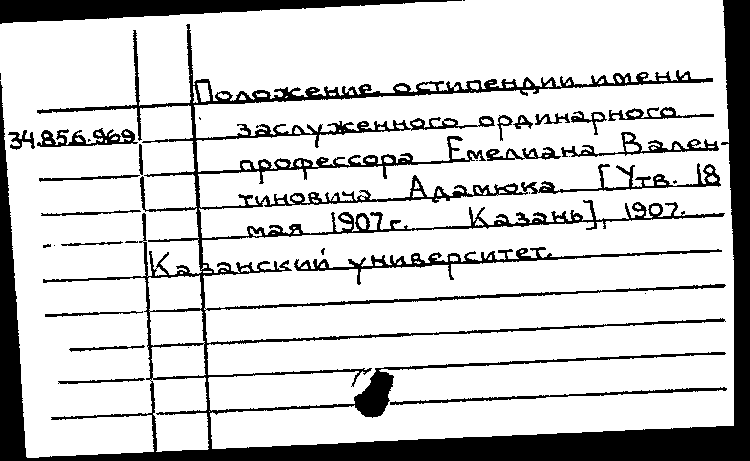 Положение остипендии имени
34.856.969 заслуженного ординарного
профессора Емелиана Вален-
тиновича Адамюка. [Утв. 18
мая 1907г. Казань], 1907.
Казанский университет.